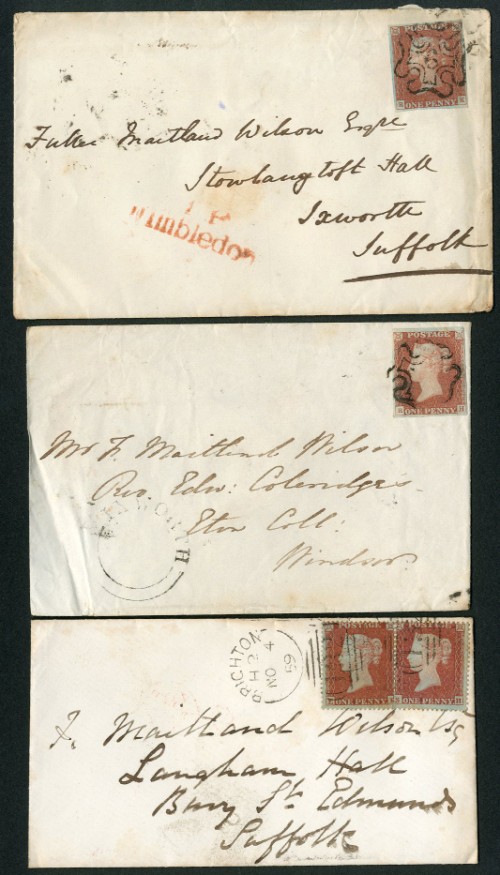 POSTAGE
ONE PENNY
Fuller Maitland Wilson Esqre
Stowlangtoft Hall
Ixworth
Suffolk
Wimbledon
POSTAGE
ONE PENNY
Mr F. Maitland Wilson
Rev. Edw: Coleridges
Eton Coll:
Windsor
POSTAGE
ONE PENNY
ONE PENNY
BRIGHTON
H2
NO 4
59
F. Maitland Wilson Esq
Langham Hall
Bury St. Edmunds
Suffolk